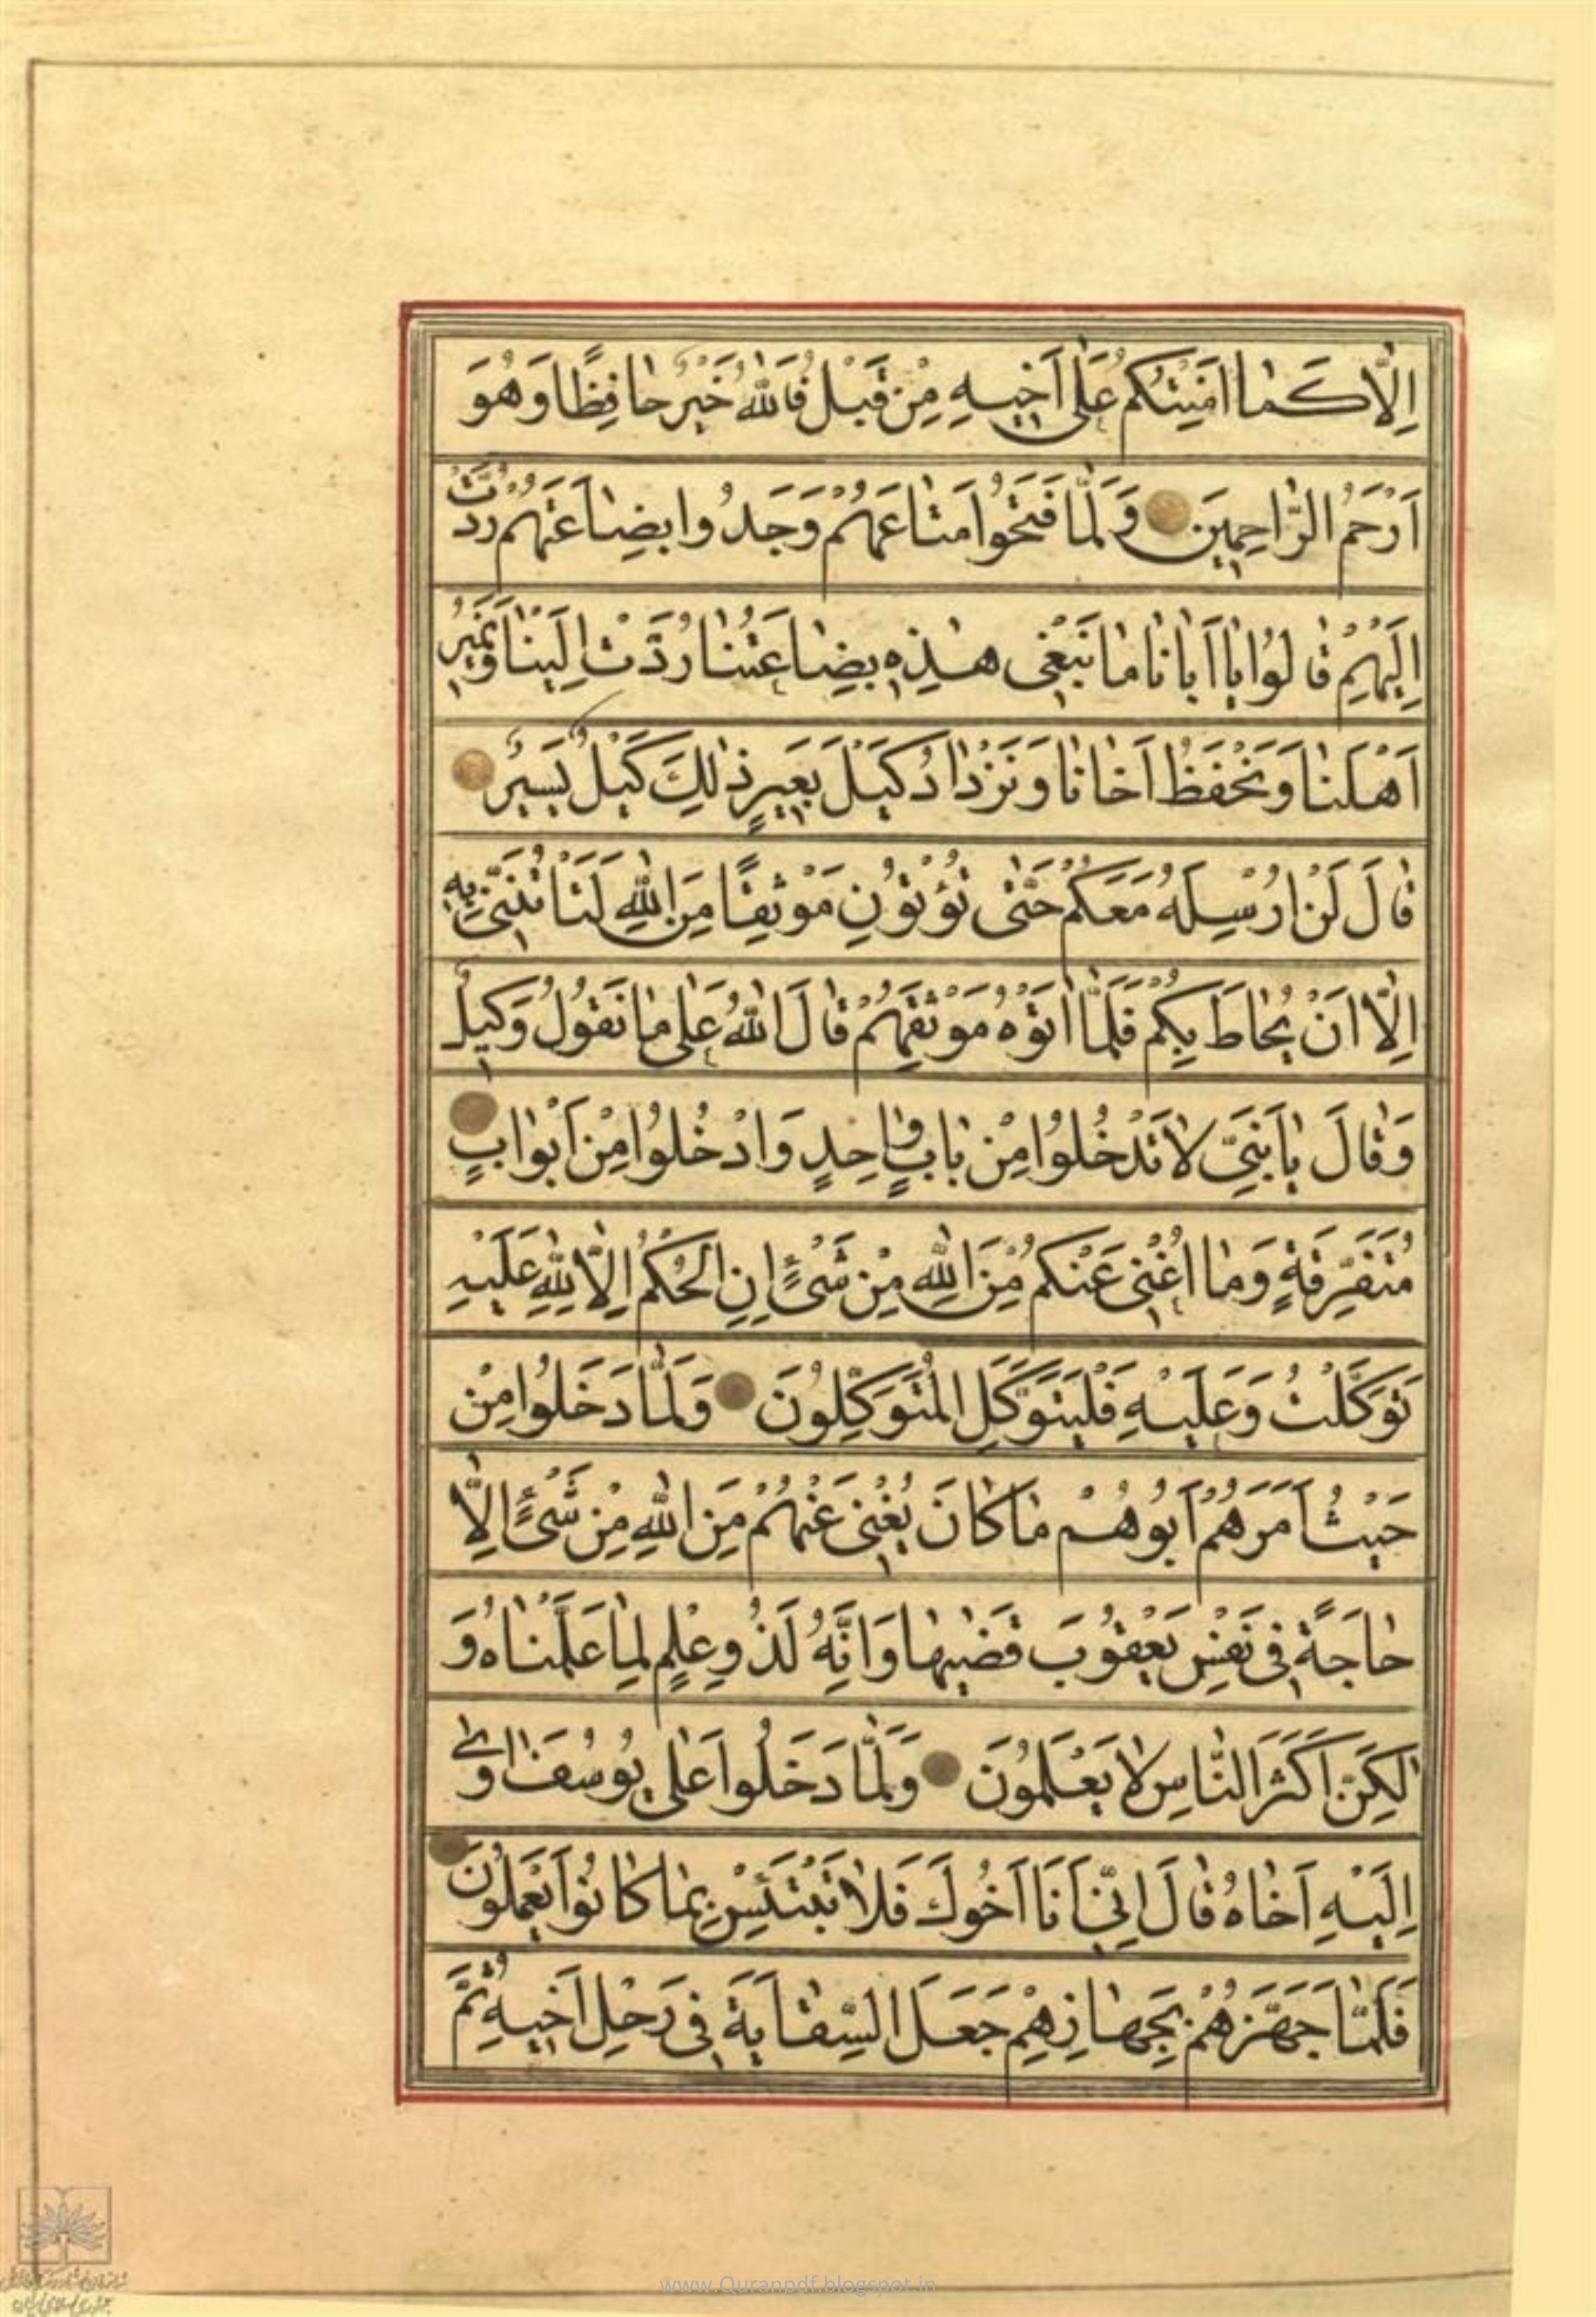 اِلّا كَما امَنْتُكُمْ عَلى اَخيهِ مِنْ قَبْلُ فَاللهُ خَيْرٌ حافِظًا وَهُوَ
اَرْحَمُ الرّاحِمينَ وَلَمّا فَتَحُوا مَتاعَهُمْ وَجَدُوا بِضاعَتَهُمْ رُدَّتْ
اِلَيْهِمْ قالُوا يا اَبانا ما نَبْغى هذِهِ بِضاعَتُنا رُدَّتْ اِلَيْنا وَنَميرُ
اَهْلَنا وَنَحْفَظُ اَخانا وَنَزْدادُ كَيْلَ بَعيرٍ ذلِكَ كَيْلٌ يَسيرٌ
قالَ لَنْ اُرْسِلَهُ مَعَكُمْ حَتّى تُؤْتُونِ مَوْثِقًا مِنَ اللهِ لَتَاْتُنَّنى بِهِ
اِلّا اَنْ يُحاطَ بِكُمْ فَلَمّا اتَوْهُ مَوْثِقَهُمْ قالَ اللهُ عَلى ما نَقُولُ وَكيلٌ
وَقالَ يا بَنِىَّ لا تَدْخُلُوا مِنْ بابٍ واحِدٍ وَادْخُلُوا مِنْ اَبْوابٍ
مُتَفَرِّقَةٍ وَما اُغْنى عَنْكُمْ مِنَ اللهِ مِنْ شَىْءٍ اِنِ الْحُكْمُ اِلّا لِلّهِ عَلَيْهِ
تَوَكَّلْتُ وَعَلَيْهِ فَلْيَتَوَكَّلِ الْمُتَوَكِّلُونَ وَلَمّا دَخَلُوا مِنْ
حَيْثُ اَمَرَهُمْ اَبُوهُمْ ما كانَ يُغْنى عَنْهُمْ مِنَ اللهِ مِنْ شَىْءٍ اِلّا
حاجَةً فى نَفْسِ يَعْقُوبَ قَضيها وَاِنَّهُ لَذُو عِلْمٍ لِما عَلَّمْناهُ وَ
لكِنَّ اَكْثَرَ النّاسِ لا يَعْلَمُونَ وَلَمّا دَخَلُوا عَلى يُوسُفَ اوى
اِلَيْهِ اَخاهُ قالَ اِنّى اَنَا اَخُوكَ فَلا تَبْتَئِسْ بِما كانُوا يَعْمَلُونَ
فَلَمّا جَهَّزَهُمْ بِجَهازِهِمْ جَعَلَ السِّقايَةَ فى رَحْلِ اَخيهِ ثُمَّ
www.Quranpdf.blogspot.in